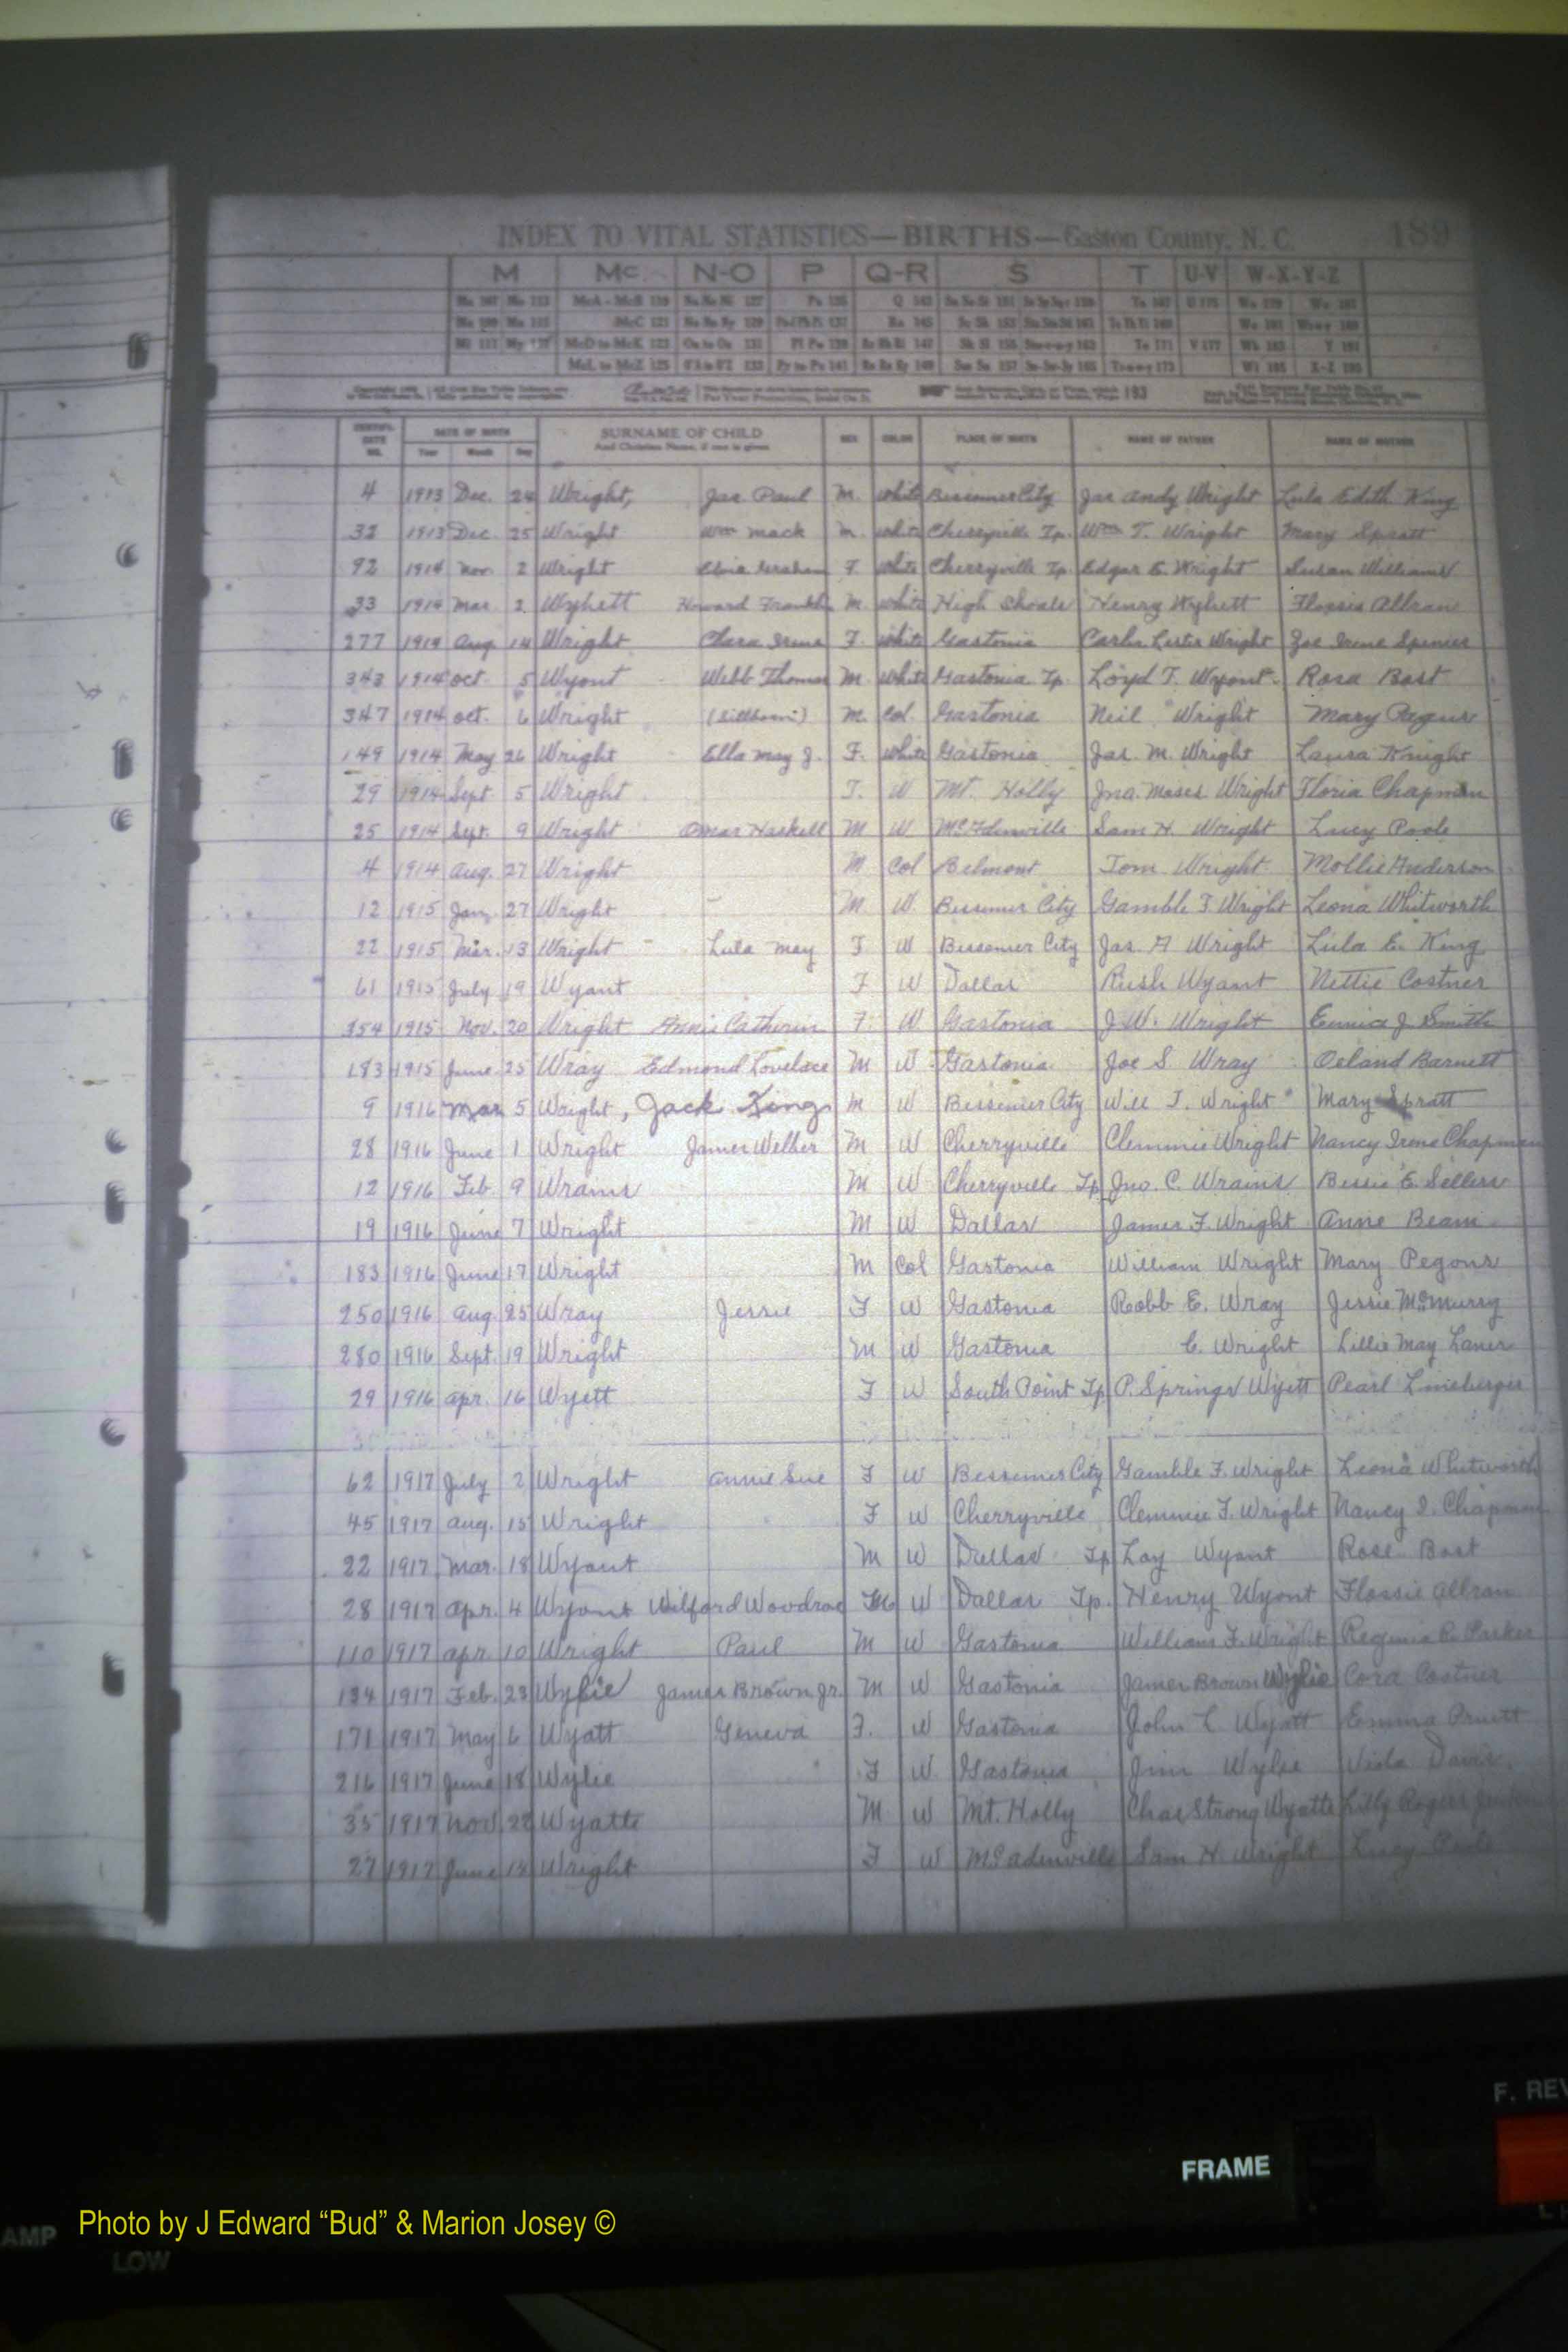 INDEX TO VITAL STATISTICS—BIRTHS—Gaston County, N. C. 189
M Mc N-O P Q-R S T U-V W-X-Y-Z
DATE OF BIRTH SURNAME OF CHILD SEX COLOR PLACE OF BIRTH NAME OF FATHER NAME OF MOTHER
Year Month Day And Christian Name, if one is given
4 1913 Dec. 24 Wright, Jas Paul M. white Bessemer City Jas Andy Wright Lula Edith King
32 1913 Dec. 25 Wright Wm Mack M. white Cherryville Tp. Wm T. Wright Mary Spratt
92 1914 Nov. 2 Wright Graham F. white Cherryville Tp. Edgar E. Wright Susan Williams
33 1914 Mar. 2 Wyhett Howard Franklin M. white High Shoals Henry Wyhett Flossie Allran
277 1914 Aug. 14 Wright Clara Irene F. white Gastonia Carlu Lester Wright Zoe Irene Spencer
343 1914 Oct. 5 Wyont Webb Thomas M. white Gastonia Tp. Loyd T. Wyont Rosa Bost
347 1914 Oct. 6 Wright (Stillborn) M. Col. Gastonia Neil Wright Mary
149 1914 May 26 Wright Ella May J. F. white Gastonia Jas. M. Wright Laura Knight
29 1914 Sept 5 Wright F. W Mt. Holly Jno. Moses Wright Floria Chapman
25 1914 Sept. 9 Wright Omar Haskell M W McAdenville Sam H. Wright Lucy Poole
4 1914 Aug. 27 Wright M Col Belmont Tom Wright Mollie Anderson
12 1915 Jan. 27 Wright M W. Bessemer City Gamble F. Wright Leona Whitworth
22 1915 Mar. 13 Wright Lula May F W Bessemer City Jas A Wright Lula E. King
61 1915 July 19 Wyant F W Dallas Rush Wyant Nettie Costner
354 1915 Nov. 20 Wright Annie Catherin F. W Gastonia J. W. Wright Eunice J. Smith
183 1915 June 25 Wray Edmond Lovelace M W Gastonia Joe S Wray Oeland Barnett
9 1916 Mar 5 Wright, Jack King M W Bessemer City Will T. Wright Mary Spratt
28 1916 June 1 Wright James Welker M W Cherryville Clemmie Wright Nancy Irene Chapman
12 1916 Feb. 9 Wrains M W Cherryville Tp. Jno. C. Wrains Bessie E. Sellers
19 1916 June 7 Wright M W Dallas James F. Wright Anne Beam
183 1916 June 17 Wright M Col Gastonia William Wright Mary Pegons
250 1916 Aug. 25 Wray Jessie F W Gastonia Robb E. Wray Jessie McMurry
280 1916 Sept. 19 Wright M W Gastonia C. Wright Lillie May Laner
29 1916 Apr. 16 Wyett F W South Point Tp P. Springs Wyett Pearl Lineberger
62 1917 July 2 Wright Annie Sue F W Bessemer City Gamble F. Wright Leona Whitworth
45 1917 Aug. 15 Wright F W Cherryville Clemmie F. Wright Nancy I. Chapman
22 1917 Mar. 18 Wyont M W Dallas Tp Loy Wyont Rose Bost
28 1917 Apr. 4 Wyont Wilford Woodrow M W Dallas Tp. Henry Wyont Flossie Allran
110 1917 Apr. 10 Wright Paul M W Gastonia William F. Wright Parker
134 1917 Feb. 23 Wylie James Brown Jr. M W Gastonia James Brown Wylie Cora Costner
171 1917 May 6 Wyatt Geneva F. W Gastonia John L. Wyatt Emma Pruett
216 1917 June 18 Wylie F W Gastonia Jim Wylie Viola Davis
35 1917 Nov. 28 Wyatte M W Mt. Holly Chas Strong Wyatte Lilly Rogers
27 1917 June 14 Wright F W McAdenville Sam H. Wright Lucy Poole
FRAME
F. REV
Photo by J Edward “Bud” & Marion Josey ©
AMP
LOW